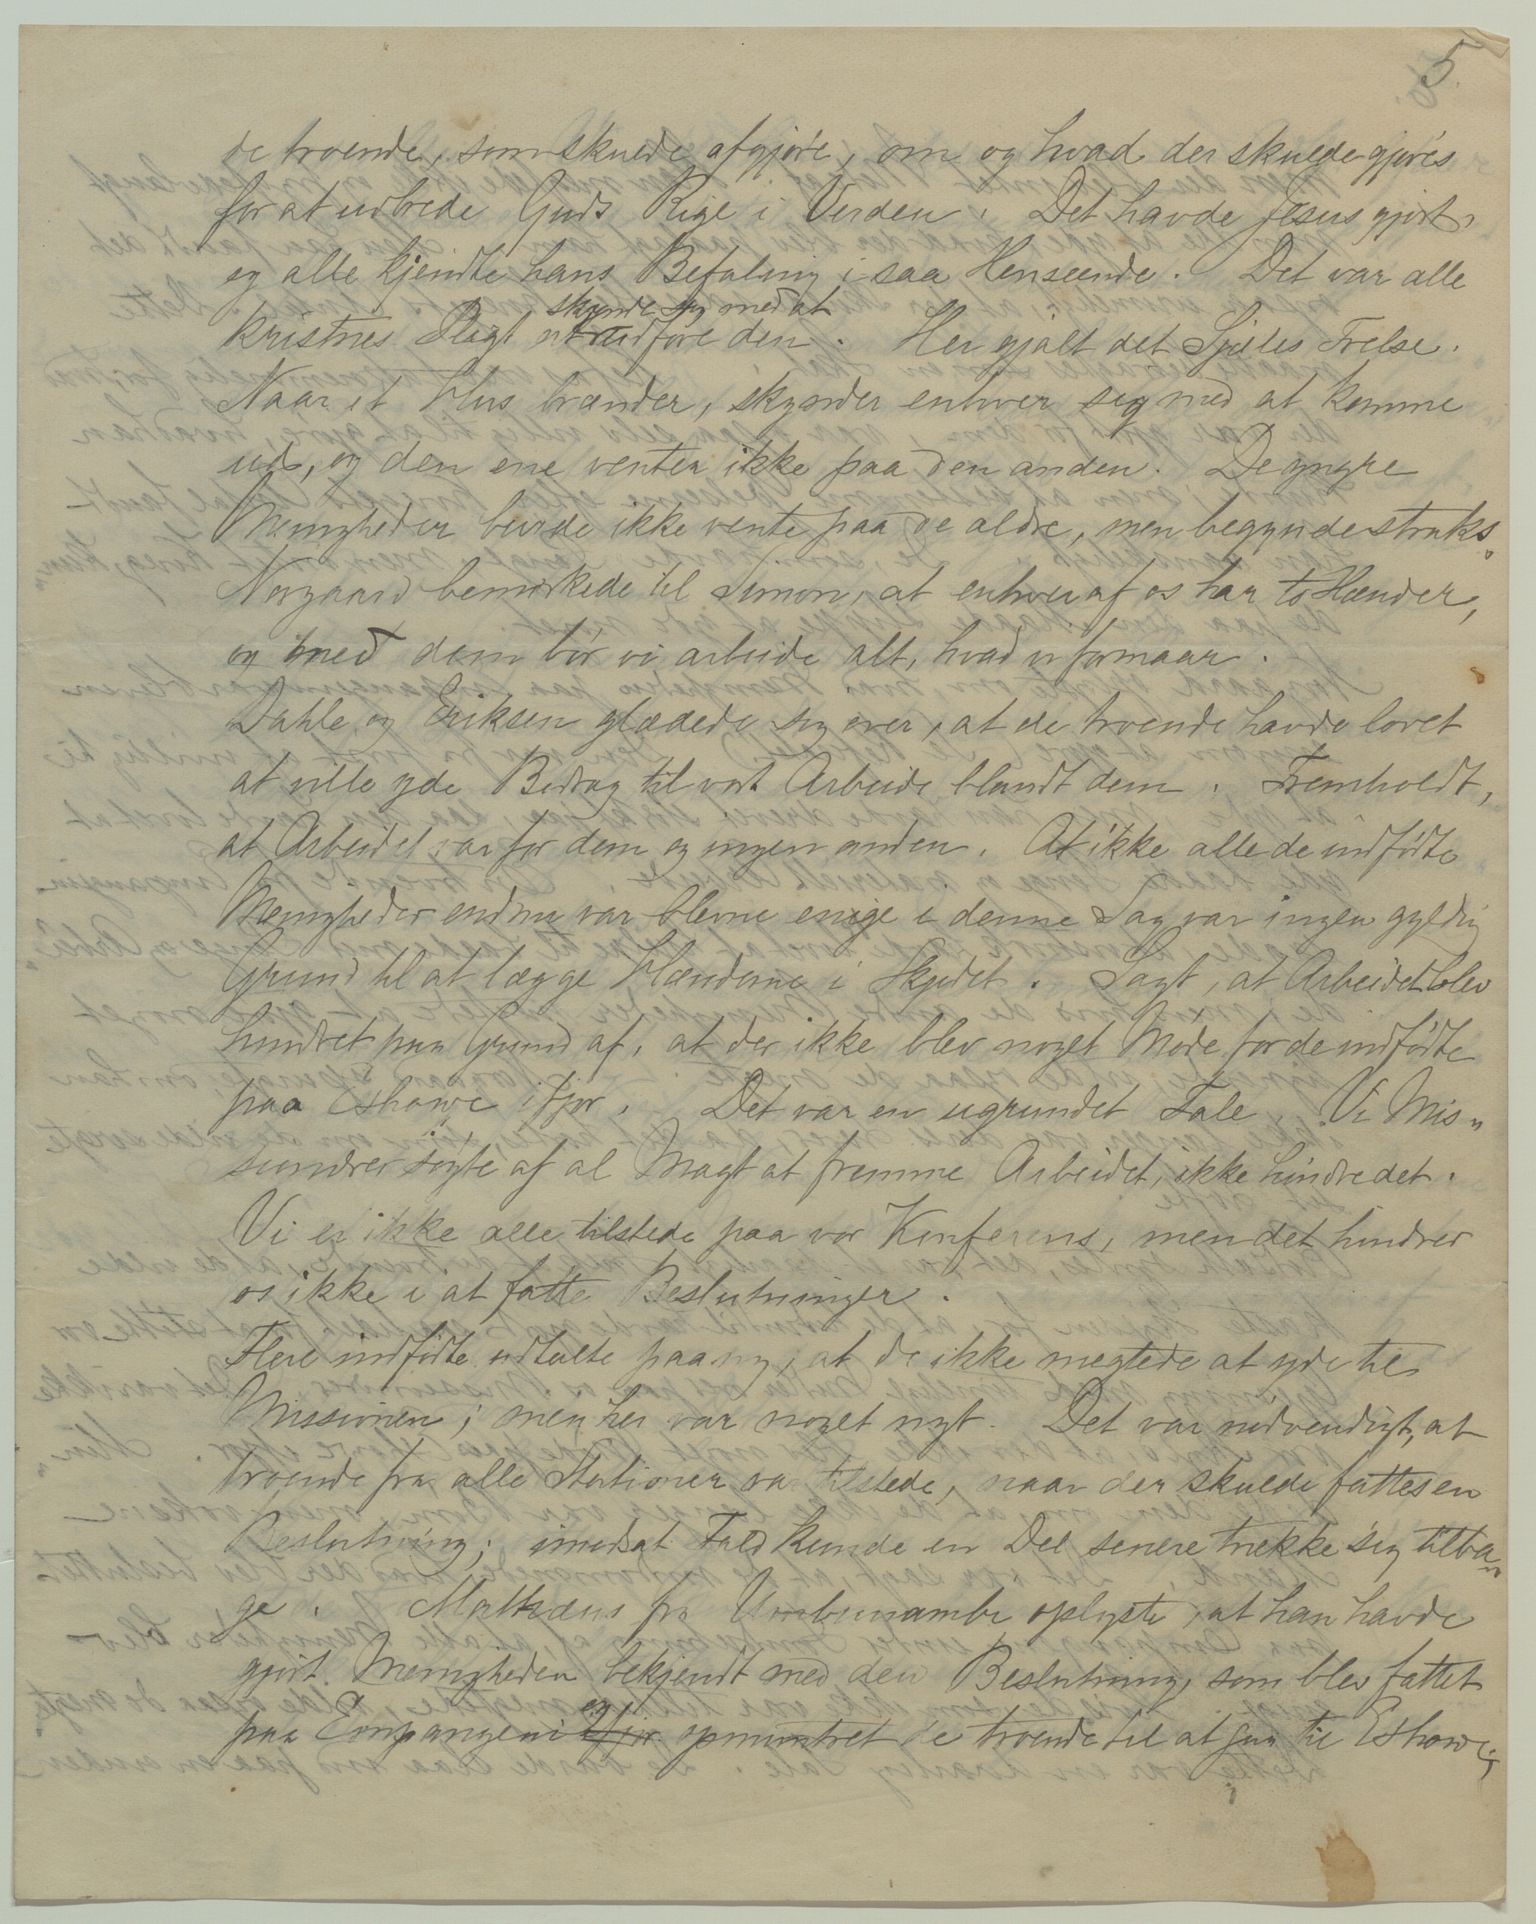 5.
de troende, som skulde afgjøre, om og hvad der skulde gjøres
for at udbrede Guds Rige i Verden. Det havde Jesus gjort,
og alle kjendte hans Befaling i saa Henseende. Det var alle
skynde sig med at
kristnes Pligt at udføre den. Her gjalt det Sjæles Frelse.
Naar et Hus brænder, skynder enhver sig med at komme
ud, og den ene venter ikke paa den anden. De yngre
Menigheder burde ikke vente paa de ældre, men begynde straks.
Norgaard bemærkede til Simon, at enhver af os har to Hænder,
og med dem bör vi arbeide alt, hvad vi formaar.
Dahle og Eriksen glædede sig over, at de troende havde lovet
at ville yde Bidrag til vort Arbeide blandt dem. Fremholdt,
at Arbeidet var for dem og ingen anden. At ikke alle de indfødte
Menigheder endnu var blevne enige i denne Sag var ingen gyldig
Grund til at lægge Hænderne i Skjødet. Sagt, at Arbeidet blev
hindret paa Grund af, at der ikke blev noget Möde for de indfödte
paa Eshowe ifjor. Det var en ugrundet Tale. Vi Mis„
sionærer søgte af al Magt at fremme Arbeidet, ikke hindre det.
Vi er ikke alle tilstede paa vor Konferens, men det hindrer
os ikke i at fatte Beslutninger.
Flere indfødte udtalte paany, at de ikke negtede at yde til
Missionen; men her var noget nyt. Det var nødvendigt, at
troende fra alle Stationer var tilstede, naar der skulde fattes en
Beslutning; imodsat Fald kunde en Del senere trække sig tilba„
ge. Matthæus fra Umbunambu oplyste, at han havde
gjort Menigheden bekjendt med den Beslutning, som blev fattet
og
paa Empangeni ifjor opmuntret de troende til at gaa til Eshowe;